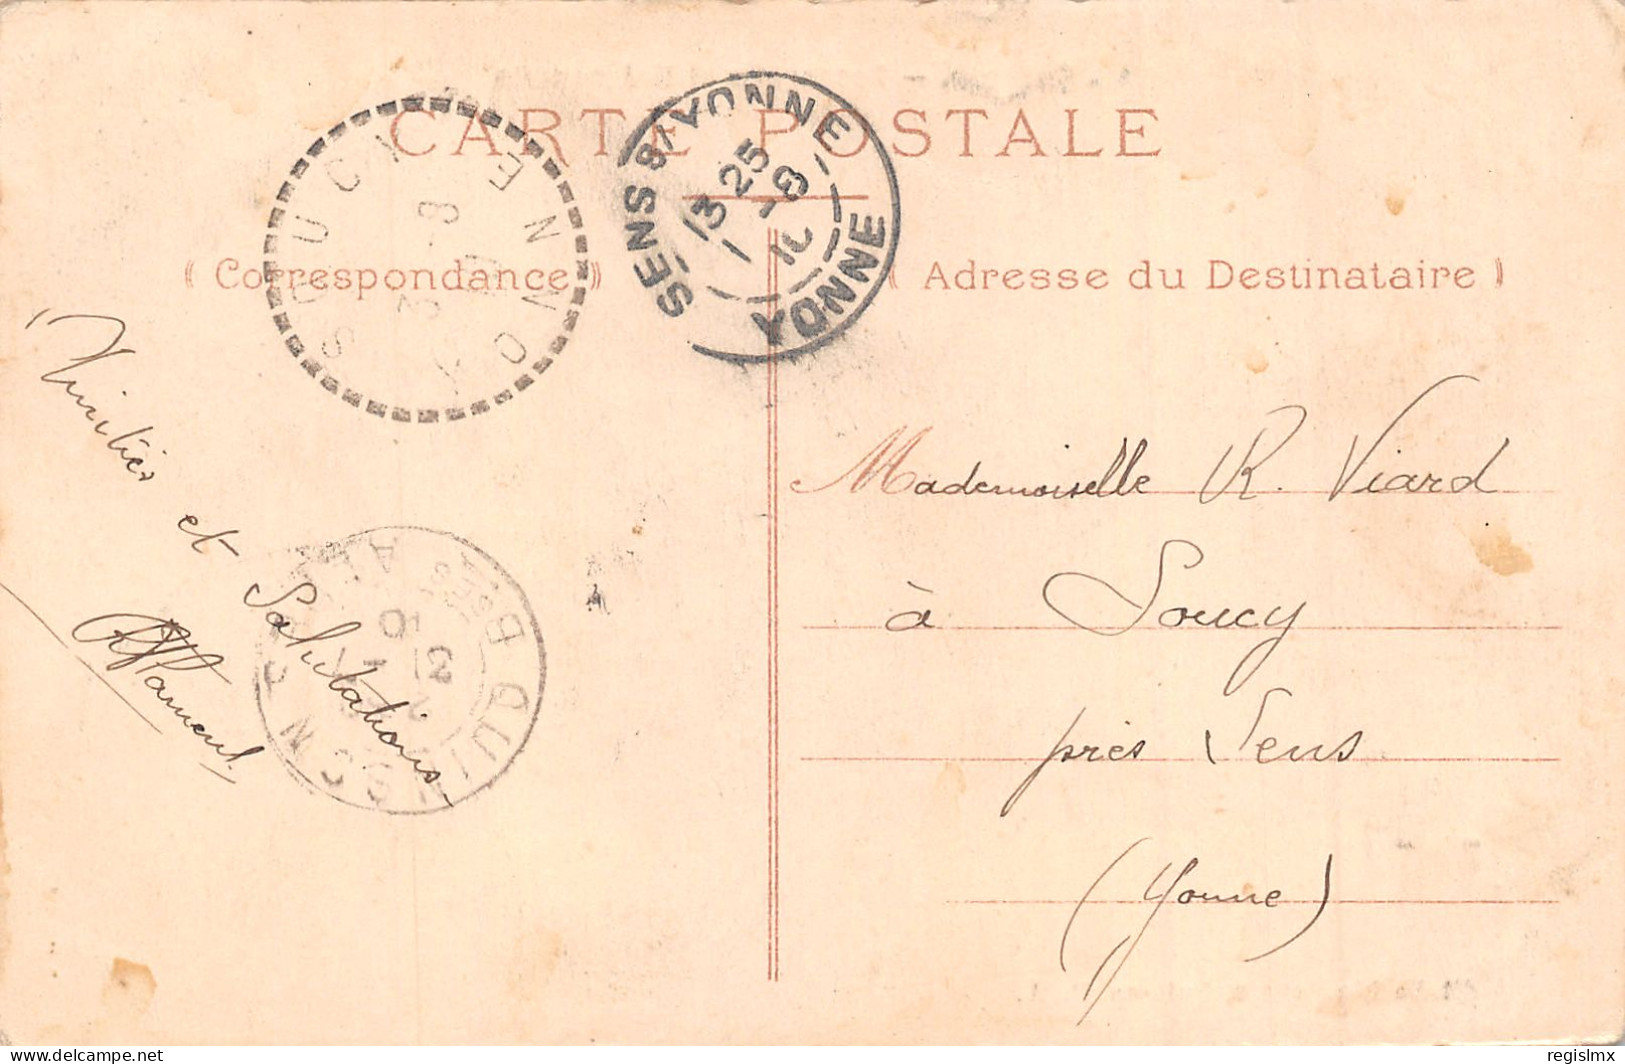 CARTE POSTALE
« Correspondance »
« Adresse du Destinataire »
SOUCY
YONNE
SENS S/YONNE
13 25
1 - 8
10
YONNE
Amitiés
et
Salutations
Mademoiselle R. Viard
à Soucy
près Sens
(Yonne)
delcampe.net
regislmx